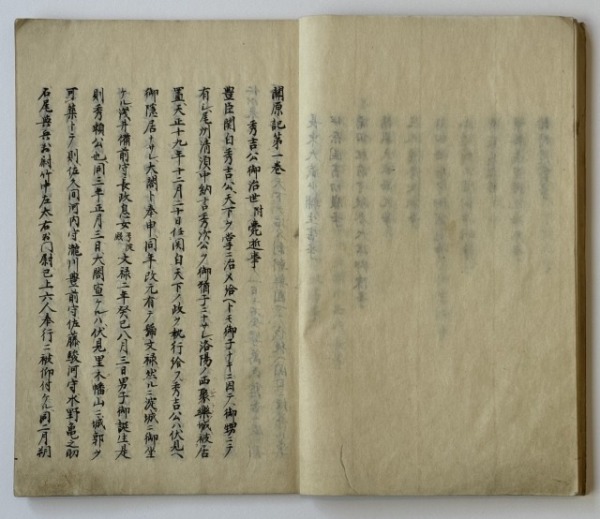 関原記第一巻
秀吉公御治世附薨逝事
豊臣関白秀吉公天下ヲ掌ニ治メ給ヘトモ御子ナキニ因テ御甥ニテ
有シ尾州清須中納言秀次公ヲ御猶子ニナサレ洛陽ノ西聚樂城被居
置天正十九年十二月二十日任関白天下ノ政ヲ執行給フ秀吉公ハ伏見ヘ
御隠居ナサレ大閤ト奉申同年改元有テ文禄ニ淀城ニ御坐
ケル浅井備前守長政息女文禄二年癸巳八月三日男子御誕生是
則秀頼公也同三年正月三日大閤宣ケルハ伏見里木幡山ニ城郭ヲ
可築トテ則佐久間河内守瀧川豊前守佐藤駿河守水野亀之助
石尾與兵衛尉竹中左太右衛門尉已上六人奉行ニ被仰付ケル同二月朔